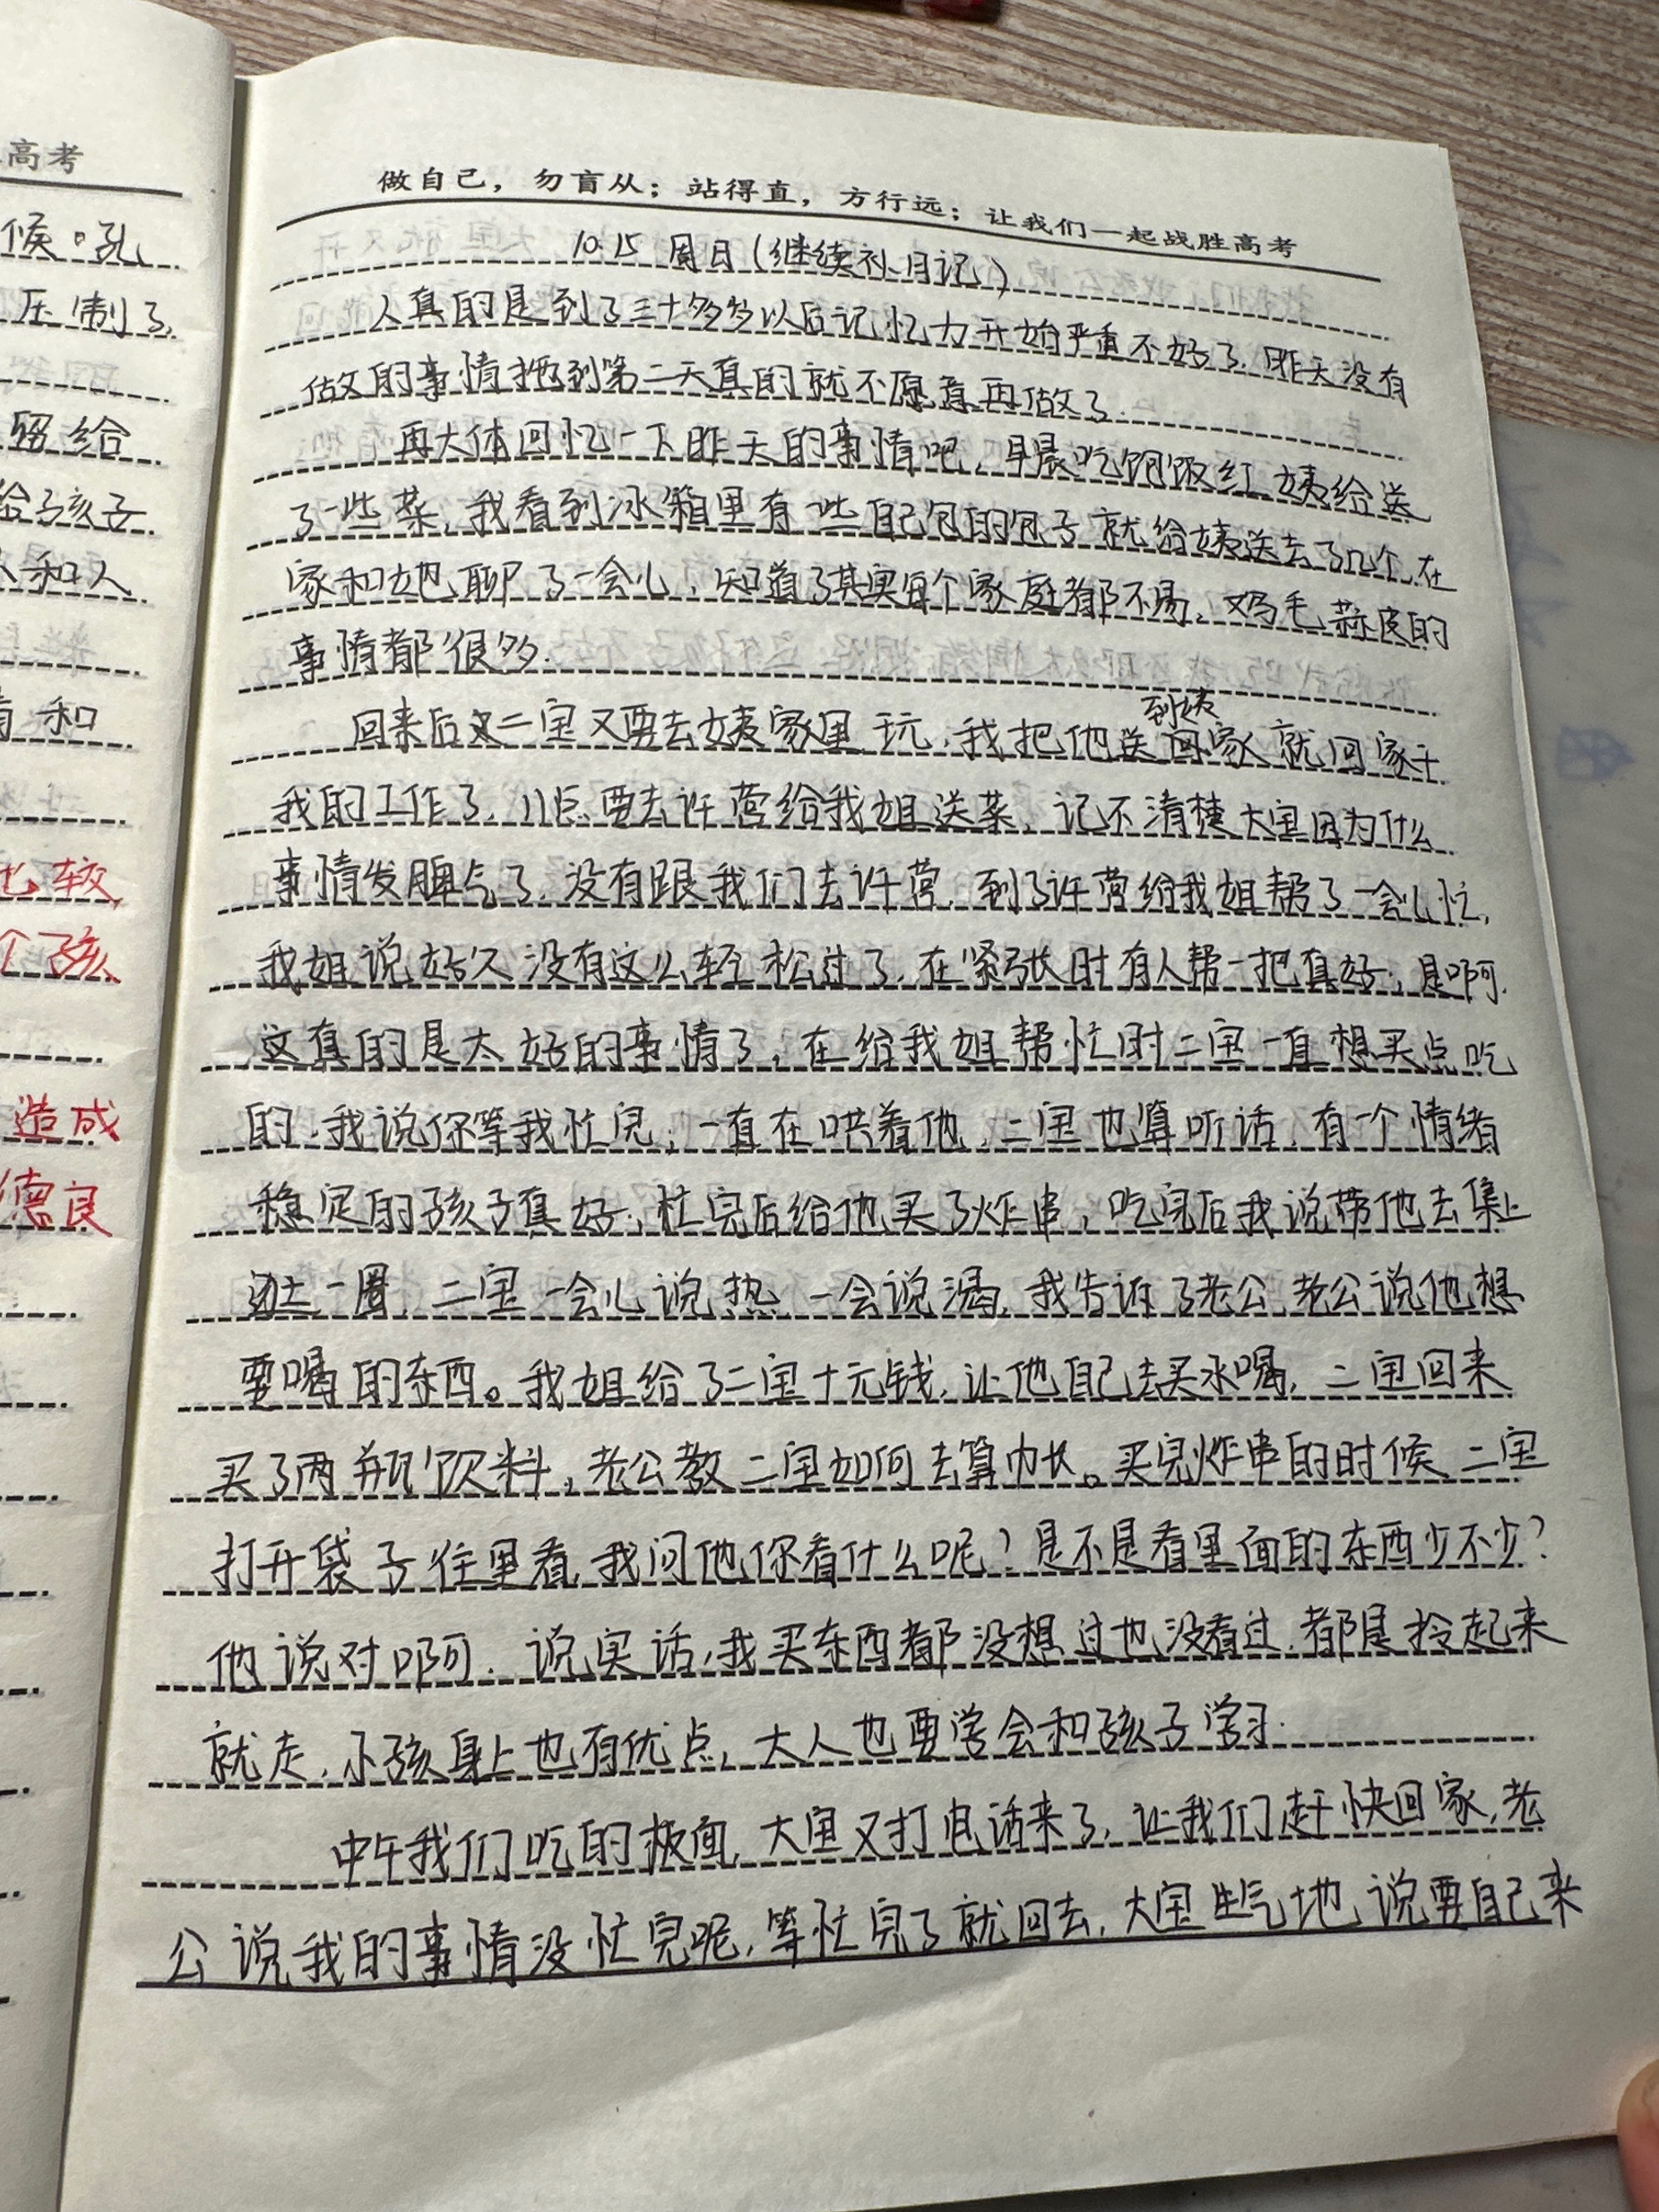 高考
候。乱
压制了.
留给
给孩子
和人
和
也较
个孩
造成
德良
做自己，勿盲从；站得直，方行远；让我们一起战胜高考
10.15 周日(继续补日记)
人真的是到了三十多岁以后记忆力开始严重不好了.昨天没有
做的事情拖到第二天真的就不愿意再做了.
再大体回忆一下昨天的事情吧,早晨吃饱饭红姨给送
了一些菜,我看到冰箱里有一些自己包的包子就给姨送去了几个,在
家和她聊了一会儿,知道了其实每个家庭都不易,鸡毛蒜皮的
事情都很多.
回来后二宝又要去姨家里玩,我把他送到姨家就回家干
我的工作了,11点要去许营给我姐送菜,记不清楚大宝因为什么
事情发脾气了,没有跟我们去许营,到了许营给我姐帮了一会儿忙,
我姐说好久没有这么轻松过了,在紧张时有人帮一把真好,是啊.
这真的是太好的事情了,在给我姐帮忙时二宝一直想买点吃
的,我说你等我忙完,一直在哄着他,二宝也算听话,有一个情绪
稳定的孩子真好,忙完后给他买了炸串,吃完后我说带他去集上
逛一圈,二宝一会儿说热,一会说渴,我告诉了老公,老公说他想
要喝的东西。我姐给了二宝十元钱,让他自己去买水喝,二宝回来
买了两瓶饮料,老公教二宝如何去算帐。买完炸串的时候,二宝
打开袋子往里看,我问他你看什么呢?是不是看里面的东西少不少?
他说对啊.说实话,我买东西都没想过也没看过,都是拎起来
就走,小孩身上也有优点,大人也要学会和孩子学习.
中午我们吃的板面,大宝又打电话来了,让我们赶快回家,老
公说我的事情没忙完呢,等忙完了就回去,大宝生气地说要自己来